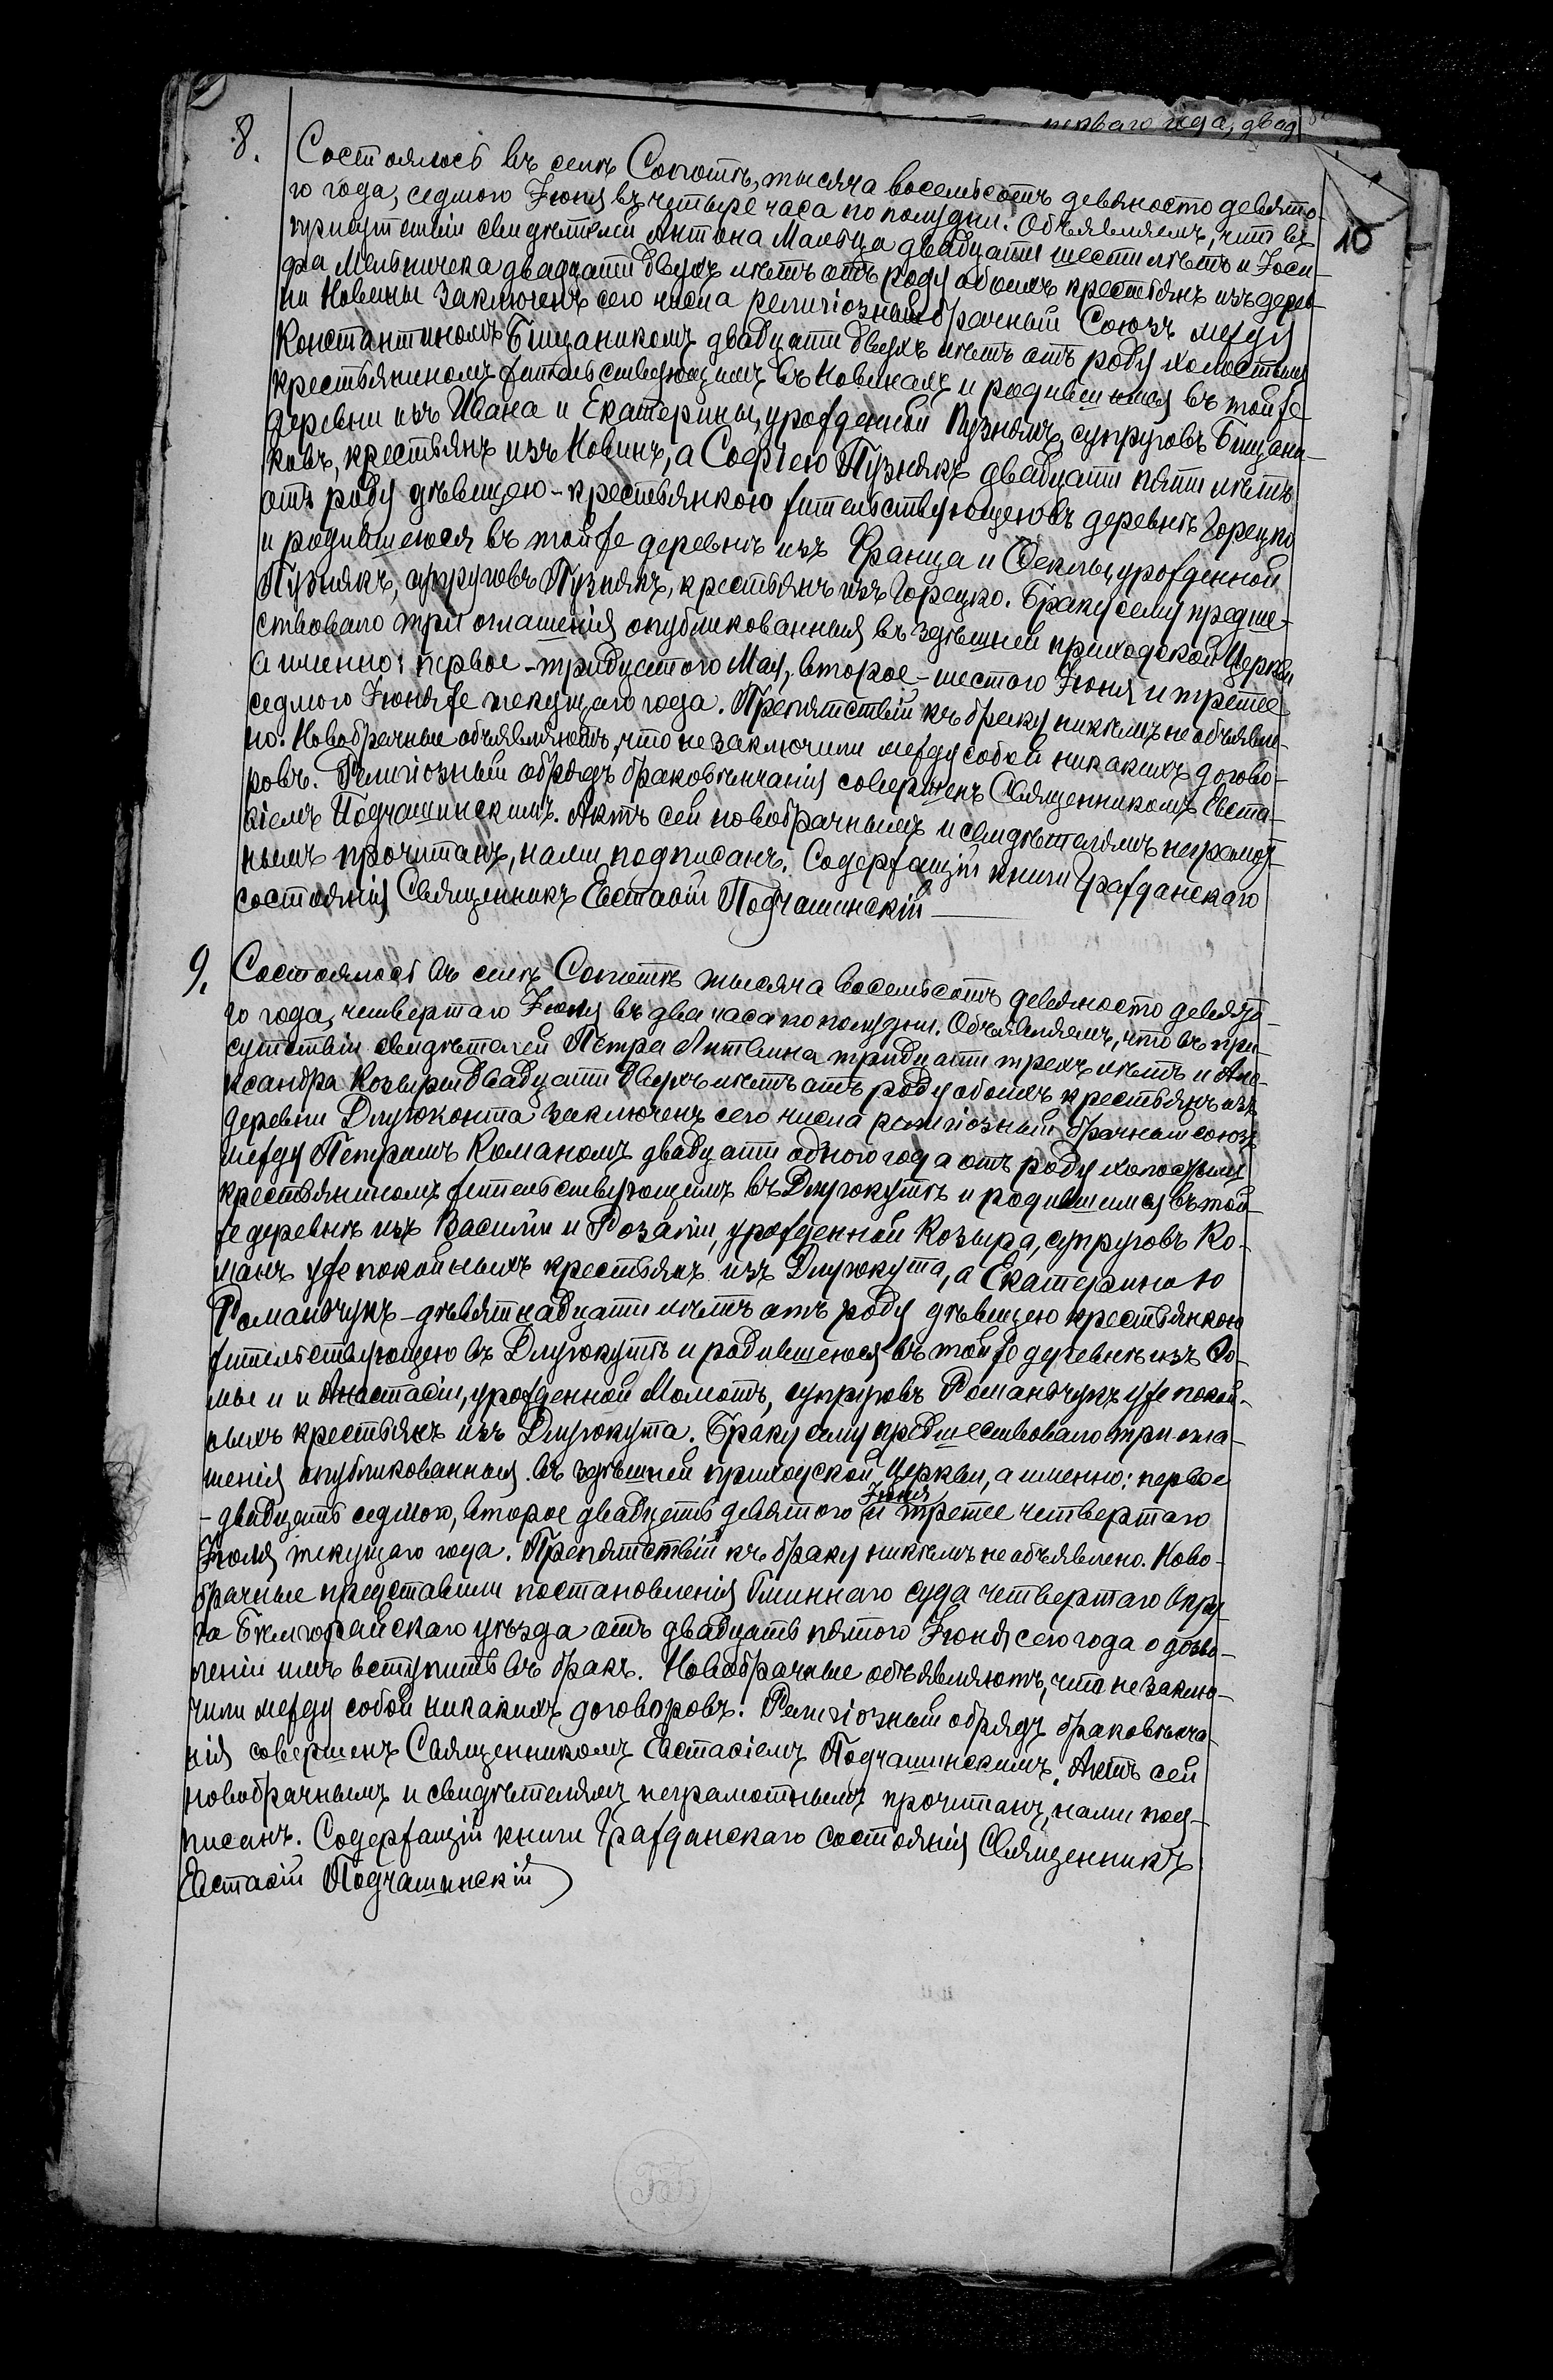 перваго года, двад
10
8.
Состоялось въ селѣ Сопотѣ, тысяча восемьсотъ девяносто девято-
го года, седмого Іюня въ четыре часа по полудни. Объявляемъ, что въ
присутствіи свидѣтелей Антона Мальца двадцати шести лѣтъ и Іоси-
фа Мельничека двадцати двухъ лѣтъ отъ роду обоихъ крестьянъ изъ дерев-
ни Новины заключенъ сего числа религіозный брачный Союзъ между
Константиномъ Бищаникомъ двадцати двухъ лѣтъ отъ роду холостымъ
крестьяниномъ жительствующимъ въ Новинахъ и родившимся въ той же
деревни изъ Ивана и Екатерины, урожденной Пузнякъ, супруговъ Бищани-
ковъ, крестьянъ изъ Новинъ, а Софіею Пузнякъ двадцати пяти лѣтъ
отъ роду дѣвицею - крестьянкою жительствующею въ деревнѣ Горецко
и родившеюся въ той же деревнѣ изъ Франца и Феклы, урожденной
Пузнякъ, супруговъ Пузнякъ, крестьянъ изъ Горецко. Браку сему предше-
ствовало три оглашенія опубликованныя въ здѣшней приходской Церкви
а именно: первое - тридцатого Мая, второе - шестого Іюня и третее
седмого Іюня же текущаго года. Препятствій къ браку никѣмъ не объявле-
но. Новобрачные объявляютъ, что не заключили между собой никакихъ догово-
ровъ. Религіозный обрядъ браковѣнчанія совершенъ Священникомъ Евста-
віемъ Подчашинскимъ. Актъ сей новобрачнымъ и свидѣтелямъ неграмот-
нымъ прочитанъ, нами подписанъ. Содержащій книги Гражданскаго
состоянія Священникъ Евставій Подчашинскій
9.
Состоялось въ селѣ Сопотѣ тысяча восемьсотъ девяносто девято-
го года, четвертаго Іюля въ два часа по полудни. Объявляемъ, что въ при-
сутствіи свидѣтелей Петра Литвина тридцати трехъ лѣтъ и Але-
ксандра Козыры двадцати двухъ лѣтъ отъ роду обоихъ крестьянъ изъ
деревни Длугоконта заключенъ сего числа религіозный брачный союзъ
между Петромъ Команомъ двадцати одного года отъ роду холостымъ
крестьяниномъ жительствующимъ въ Длугокутѣ и родившимся въ той-
же деревнѣ изъ Василія и Розаліи, урожденной Козыра, супруговъ Ко-
манъ уже покойныхъ крестьянъ изъ Длугокута, а Екатериною
Романчукъ - девятнадцати лѣтъ отъ роду дѣвицею крестьянкою
жительствующею въ Длугокутѣ и родившеюся въ той же деревнѣ изъ Ѳо-
мы и и Анастасіи, урожденной Момотъ, супруговъ Романчукъ уже покой-
ныхъ крестьянъ изъ Длугокута. Браку сему предшествовало три огла-
шенія опубликованныя въ здѣшней приходской Церкви, а именно: первое
- двадцать седмого, второе двадцать девятого Іюня и третее четвертаго
Іюля текущаго года. Препятствій къ браку никѣмъ не объявлено. Ново-
брачные представили постановленія Гминнаго суда четвертаго Окру-
га Бѣлгорайскаго уѣзда отъ двадцать пятого Іюня сего года о дозво-
леніи имъ вступить въ бракъ. Новобрачные объявляютъ, что не заклю-
чили между собой никакихъ договоровъ. Религіозный обрядъ браковѣнча-
нія совершенъ Священникомъ Евставіемъ Подчашинскимъ. Актъ сей
новобрачнымъ и свидѣтелямъ неграмотнымъ прочитанъ, нами под-
писанъ. Содержащій книги Гражданскаго состоянія Священникъ
Евставій Подчашинскій